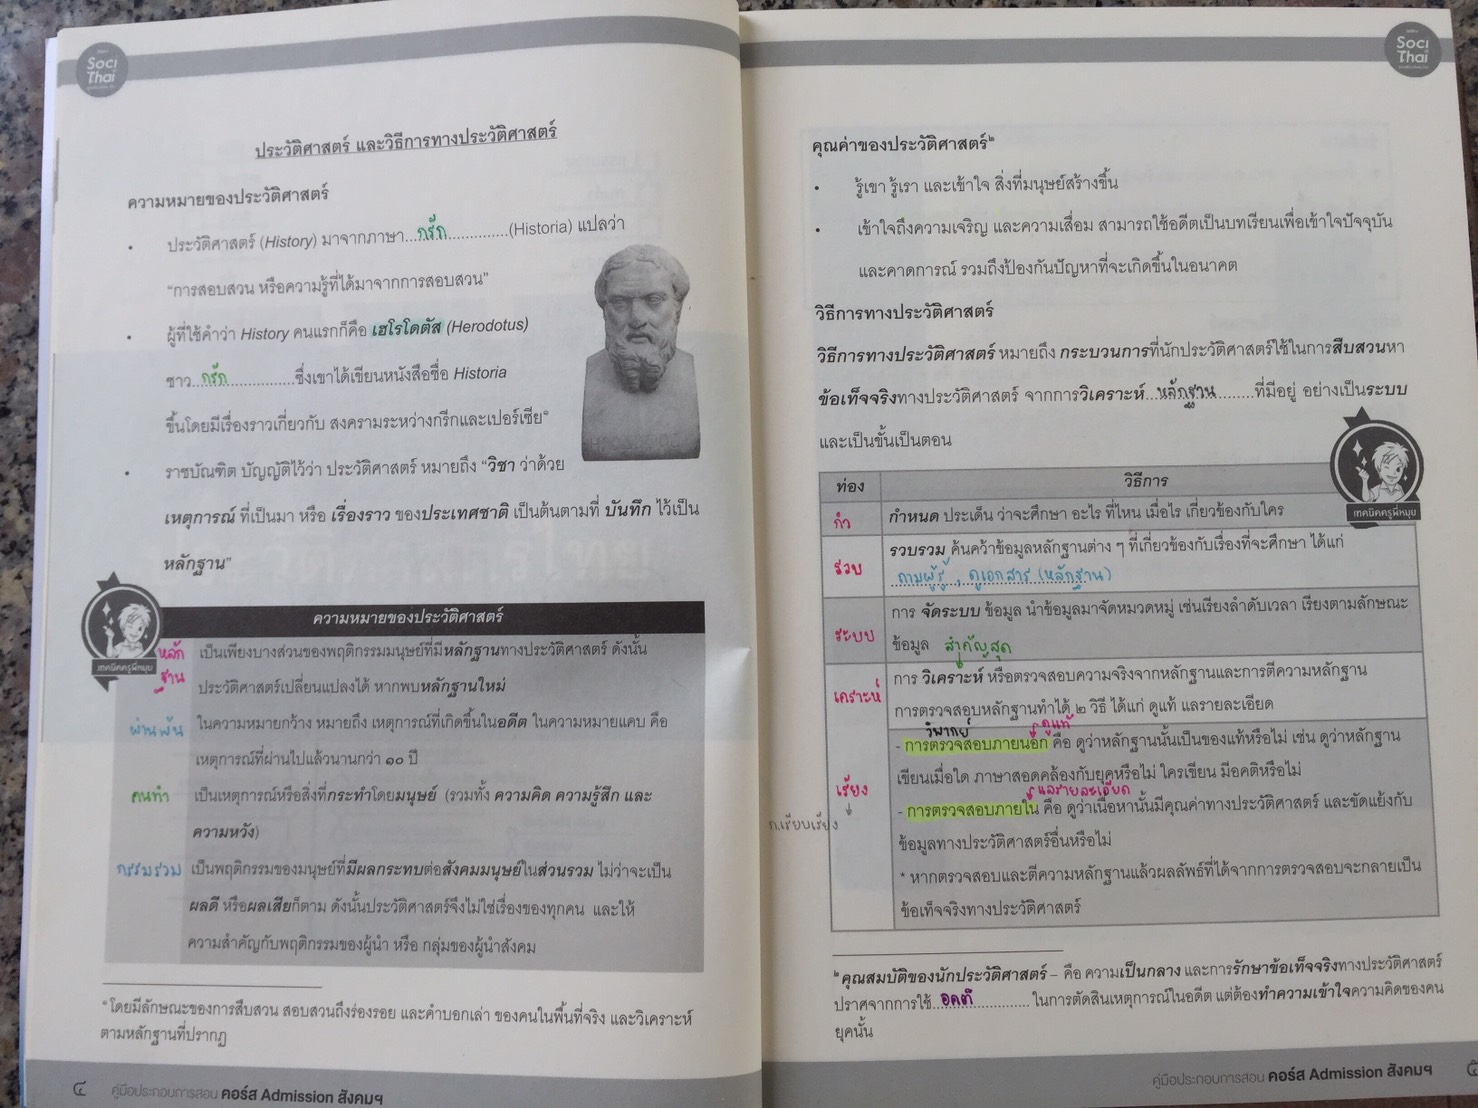 Soci
Thai
ประวัติศาสตร์ และวิธีการทางประวัติศาสตร์
ความหมายของประวัติศาสตร์
• ประวัติศาสตร์ (History) มาจากภาษา...กรีก...............(Historia) แปลว่า
“การสอบสวน หรือความรู้ที่ได้มาจากการสอบสวน”
• ผู้ที่ใช้คำว่า History คนแรกก็คือ เฮโรโดตัส (Herodotus)
ชาว..กรีก..................ซึ่งเขาได้เขียนหนังสือชื่อ Historia
ขึ้นโดยมีเรื่องราวเกี่ยวกับ สงครามระหว่างกรีกและเปอร์เซีย๑
• ราชบัณฑิต บัญญัติไว้ว่า ประวัติศาสตร์ หมายถึง “วิชา ว่าด้วย
เหตุการณ์ ที่เป็นมา หรือ เรื่องราว ของประเทศชาติ เป็นต้นตามที่ บันทึก ไว้เป็น
หลักฐาน”
เทคนิคครูพี่หมุย
ความหมายของประวัติศาสตร์
หลัก เป็นเพียงบางส่วนของพฤติกรรมมนุษย์ที่มีหลักฐานทางประวัติศาสตร์ ดังนั้น
ฐาน ประวัติศาสตร์เปลี่ยนแปลงได้ หากพบหลักฐานใหม่
ผ่านพ้น ในความหมายกว้าง หมายถึง เหตุการณ์ที่เกิดขึ้นในอดีต ในความหมายแคบ คือ
เหตุการณ์ที่ผ่านไปแล้วนานกว่า ๑๐ ปี
คนทำ เป็นเหตุการณ์หรือสิ่งที่กระทำโดยมนุษย์ (รวมทั้ง ความคิด ความรู้สึก และ
ความหวัง)
กรรมรวม เป็นพฤติกรรมของมนุษย์ที่มีผลกระทบต่อสังคมมนุษย์ในส่วนรวม ไม่ว่าจะเป็น
ผลดี หรือผลเสียก็ตาม ดังนั้นประวัติศาสตร์จึงไม่ใช่เรื่องของทุกคน และให้
ความสำคัญกับพฤติกรรมของผู้นำ หรือ กลุ่มของผู้นำสังคม
๑ โดยมีลักษณะของการสืบสวน สอบสวนถึงร่องรอย และคำบอกเล่า ของคนในพื้นที่จริง และวิเคราะห์
ตามหลักฐานที่ปรากฏ
๔ คู่มือประกอบการสอน คอร์ส Admission สังคมฯ
Soci
Thai
คุณค่าของประวัติศาสตร์๒
• รู้เขา รู้เรา และเข้าใจ สิ่งที่มนุษย์สร้างขึ้น
• เข้าใจถึงความเจริญ และความเสื่อม สามารถใช้อดีตเป็นบทเรียนเพื่อเข้าใจปัจจุบัน
และคาดการณ์ รวมถึงป้องกันปัญหาที่จะเกิดขึ้นในอนาคต
วิธีการทางประวัติศาสตร์
วิธีการทางประวัติศาสตร์ หมายถึง กระบวนการที่นักประวัติศาสตร์ใช้ในการสืบสวนหา
ข้อเท็จจริงทางประวัติศาสตร์ จากการวิเคราะห์...หลักฐาน.........ที่มีอยู่ อย่างเป็นระบบ
และเป็นขั้นเป็นตอน
เทคนิคครูพี่หมุย
ท่อง วิธีการ
กำ กำหนด ประเด็น ว่าจะศึกษา อะไร ที่ไหน เมื่อไร เกี่ยวข้องกับใคร
รวบ รวบรวม ค้นคว้าข้อมูลหลักฐานต่าง ๆ ที่เกี่ยวข้องกับเรื่องที่จะศึกษา ได้แก่
ถามผู้รู้ , ดูเอกสาร (หลักฐาน)
ระบบ การ จัดระบบ ข้อมูล นำข้อมูลมาจัดหมวดหมู่ เช่นเรียงลำดับเวลา เรียงตามลักษณะ
ข้อมูล สำคัญสุด
เคราะห์ การ วิเคราะห์ หรือตรวจสอบความจริงจากหลักฐานและการตีความหลักฐาน
การตรวจสอบหลักฐานทำได้ ๒ วิธี ได้แก่ ดูแท้ แลรายละเอียด
วิพากย์ ดูแท้
- การตรวจสอบภายนอก คือ ดูว่าหลักฐานนั้นเป็นของแท้หรือไม่ เช่น ดูว่าหลักฐาน
เขียนเมื่อใด ภาษาสอดคล้องกับยุคหรือไม่ ใครเขียน มีอคติหรือไม่
เรียง แลรายละเอียด
- การตรวจสอบภายใน คือ ดูว่าเนื้อหานั้นมีคุณค่าทางประวัติศาสตร์ และขัดแย้งกับ
ก.เรียบเรียง
ข้อมูลทางประวัติศาสตร์อื่นหรือไม่
* หากตรวจสอบและตีความหลักฐานแล้วผลลัพธ์ที่ได้จากการตรวจสอบจะกลายเป็น
ข้อเท็จจริงทางประวัติศาสตร์
๒ คุณสมบัติของนักประวัติศาสตร์ – คือ ความเป็นกลาง และการรักษาข้อเท็จจริงทางประวัติศาสตร์
ปราศจากการใช้..อคติ............ ในการตัดสินเหตุการณ์ในอดีต แต่ต้องทำความเข้าใจความคิดของคน
ยุคนั้น
คู่มือประกอบการสอน คอร์ส Admission สังคมฯ ๕